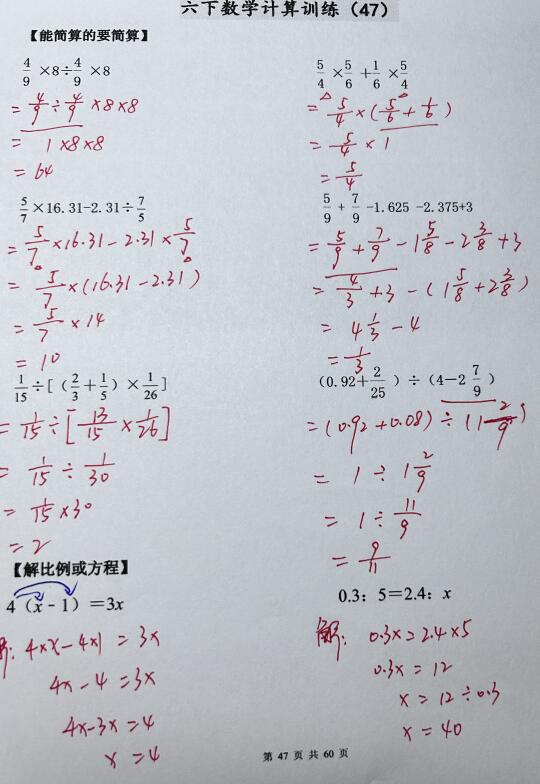 六下数学计算训练（47）
【能简算的要简算】
4/9 ×8÷4/9 ×8
= 4/9 ÷ 4/9 ×8×8
= 1×8×8
= 64
5/4 ×5/6 +1/6 ×5/4
= 5/4 ×(5/6 + 1/6)
= 5/4 × 1
= 5/4
5/7 ×16.31-2.31÷7/5
= 5/7 ×16.31 - 2.31 × 5/7
= 5/7 ×(16.31 - 2.31)
= 5/7 × 14
= 10
5/9 + 7/9 -1.625 -2.375+3
= 5/9 + 7/9 - 1 5/8 - 2 3/8 + 3
= 4/3 + 3 - (1 5/8 + 2 3/8)
= 4 1/3 - 4
= 1/3
1/15 ÷[（2/3 +1/5）×1/26]
= 1/15 ÷[13/15 × 1/26]
= 1/15 ÷ 1/30
= 1/15 ×30
= 2
（0.92+2/25）÷（4-2 7/9）
= (0.92 + 0.08) ÷ (1 2/9)
= 1 ÷ 1 2/9
= 1 ÷ 11/9
= 9/11
【解比例或方程】
4（x-1）=3x
4×x - 4×1 = 3x
4x - 4 = 3x
4x - 3x = 4
x = 4
0.3：5=2.4：x
解: 0.3x = 2.4×5
0.3x = 12
x = 12÷0.3
x = 40
第 47 页 共 60 页